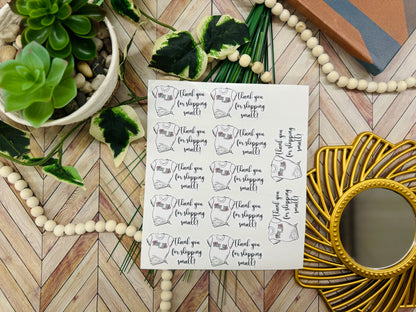 thank you
for shopping
small!
thank you
for shopping
small!
thank you
for shopping
small!
thank you
for shopping
small!
thank you
for shopping
small!
thank you
for shopping
small!
thank you
for shopping
small!
thank you
for shopping
small!
thank you
for shopping
small!
thank you
for shopping
small!
thank you
for shopping
small!
thank you
for shopping
small!